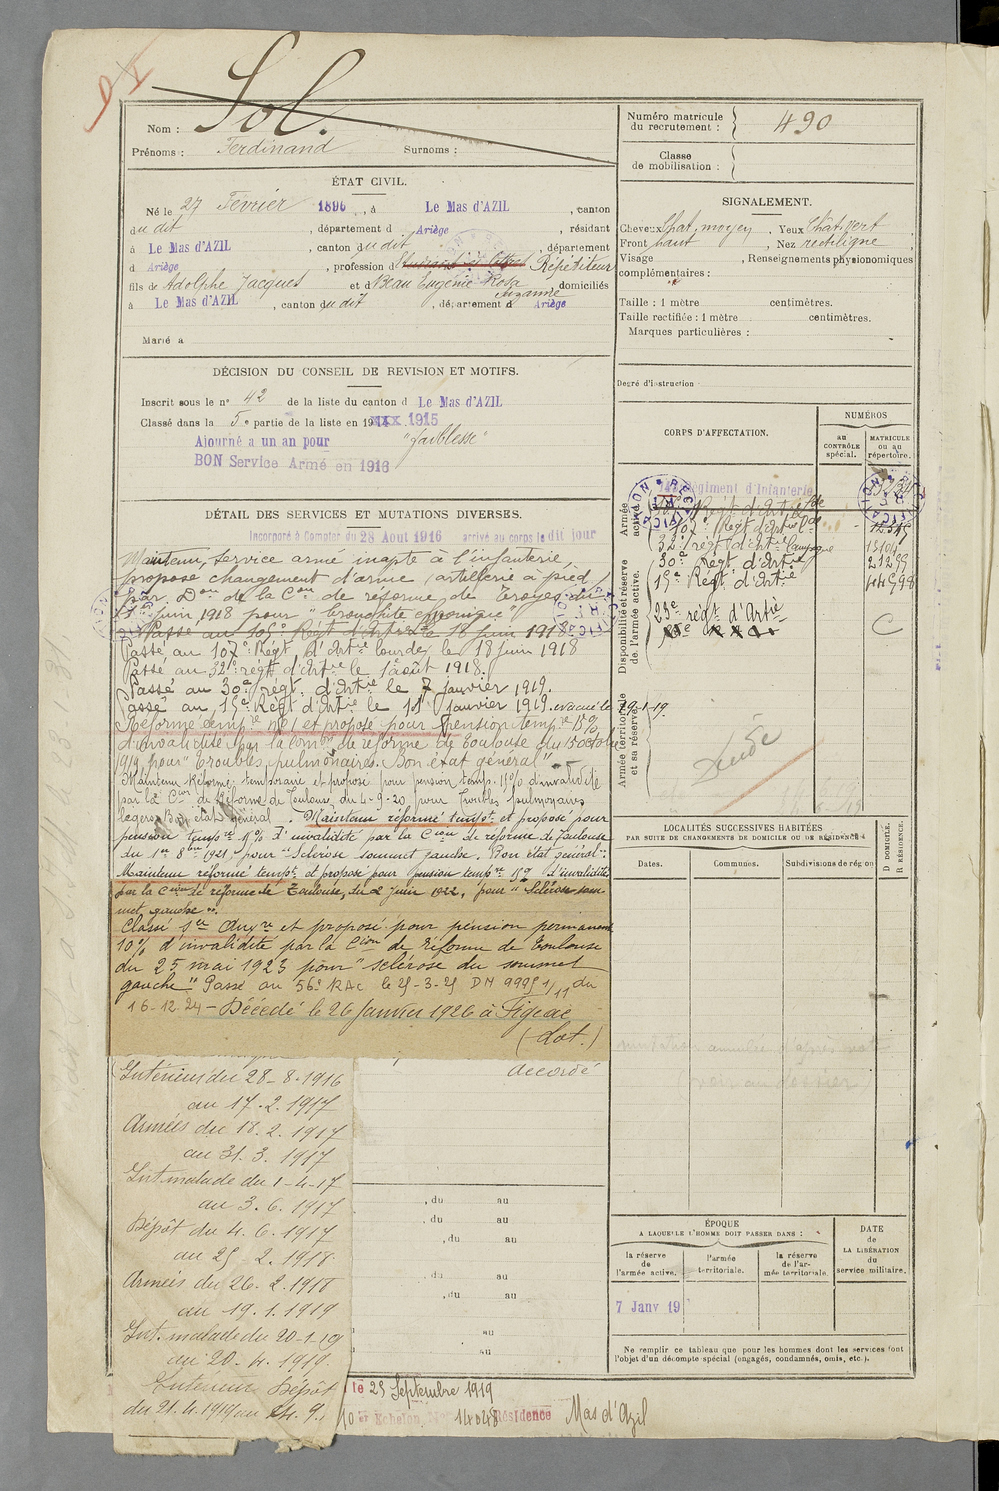 Nom : Sol.
Prénoms : Ferdinand Surnoms :
Numéro matricule du recrutement : 490
Classe de mobilisation :
ÉTAT CIVIL.
Né le 27 Février 1896, à Le Mas d'AZIL, canton
du dit, départem^ent d Ariège, résidant
à Le Mas d'AZIL, canton du dit, département
d Ariège, profession d Répétiteur
fils de Adolphe Jacques et d Blau Eugénie Rosa Suzanne domiciliés
à Le Mas d'AZIL, canton du dit, département d Ariège
Marié à
SIGNALEMENT.
Cheveux Chat. moyen, Yeux Chat. vert
Front haut, Nez rectiligne
Visage, Renseignements physionomiques
complémentaires :
Taille : 1 mètre centimètres.
Taille rectifiée : 1 mètre centimètres.
Marques particulières :
Degré d'instruction
DÉCISION DU CONSEIL DE REVISION ET MOTIFS.
Inscrit sous le n° 42 de la liste du canton d Le Mas d'AZIL
Classé dans la 5e partie de la liste en 1915
Ajourné a un an pour "faiblesse"
BON Service Armé en 1916
DÉTAIL DES SERVICES ET MUTATIONS DIVERSES.
Incorporé à Compter du 28 Aout 1916 arrivé au corps le dit jour
Maintenu, service armé inapte à l'infanterie,
propose changement d'arme (artillerie à pied)
par D^on de la C^on de réforme de Troyes du
juin 1918 pour "bronchite chronique"
Passé au 105e Régt d'Art^rie le 18 juin 1918
Passé au 107e Régt d'Art^ie lourde, le 18 juin 1918
Passé au 32e régt d'Art^ie le 1 août 1918.
Passé au 30e régt. d'Art^ie le 7 janvier 1919.
Passé au 15e Régt d'Art^ie le 11 janvier 1919. évacué le 19.1.19.
Réformé temp^re n°1 et proposé pour pension temp^re 15%
d'invalidité par la Com^on de réforme de Toulouse du 15 octobre
1919 pour "Troubles pulmonaires. Bon état général"
Maintenu Réformé temporaire et proposé pour pension temp. 15% d'invalidité
par la C^ion de Réforme de Toulouse du 4-9-20 pour Troubles pulmonaires
légers Bon état général. Maintenu réformé temp^re et proposé pour
pension temp^re 15% d'invalidité par la C^ion de réforme de Toulouse
du 1er 8^bre 1921 pour "Sclérose sommet gauche. Bon état général".
Maintenu réformé temp^re et proposé pour pension temp^re 15% d'invalidité
par la C^ion de réforme de Toulouse, du 2 juin 1922, pour "Sclérose som
met gauche".
Classé s^ce Aux^re et proposé pour pension permanente
10% d'invalidité par la C^ion de réforme de Toulouse
du 25 mai 1923 pour "sclérose du sommet
gauche" Passé au 56e RAC le 25-3-25 DM 9995 1/11 du
16-12-24 - Décédé le 26 Janvier 1926 à Figeac
(Lot.)
accordé
Intérieur du 28-8-1916
au 17.2.1917
Armées du 18.2.1917
au 31.3.1917
Int. malade du 1-4-17
au 3.6.1917
Dépôt du 4.6.1917
au 25.2.1918
Armées du 26.2.1918
au 19.1.1919
Int. malade du 20-1-19
au 20-4.1919.
Intérieur Dépôt
du 21.4.1919 au 24.9.
, du au
, du au
, du au
, du au
, du au
au
au
le 25 Septembre 1919
Echelon 14048 Résidence Mas d'Azil
CORPS D'AFFECTATION.
NUMÉROS
AU CONTRÔLE spécial.
MATRICULE ou au répertoire.
Armée active.
Régiment d'Infanterie
107e Régt d'Art^ie L^de 12345
32e régt d'Art^ie Campagne
30e Régt d'Art^ie 23299
15e Régt. d'Art^ie
Disponibilité et réserve de l'armée active.
23e régt d'Art^ie C
Armée territoriale et sa réserve.
Décédé
LOCALITÉS SUCCESSIVES HABITÉES
PAR SUITE DE CHANGEMENTS DE DOMICILE OU DE RÉSIDENCE
Dates. Communes. Subdivisions de région
D DOMICILE.
R RÉSIDENCE.
mutation annulée d'après note
(voir au dossier)
ÉPOQUE
A LAQUELLE L'HOMME DOIT PASSER DANS :
la réserve de l'armée active.
l'armée territoriale.
la réserve de l'armée territoriale.
DATE DE LA LIBÉRATION du service militaire.
7 Janv 19
Ne remplir ce tableau que pour les hommes dont les services font
l'objet d'un décompte spécial (engagés, condamnés, omis, etc.).